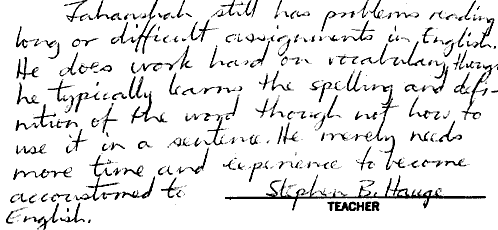 Jahanshah still has problems reading
long or difficult assignments in English.
He does work hard on vocabulary though
he typically learns the spelling and defi-
nition of the word though not how to
use it in a sentence. He merely needs
more time and experience to become
accoustomed to Stephen B. Hauge
TEACHER
English.